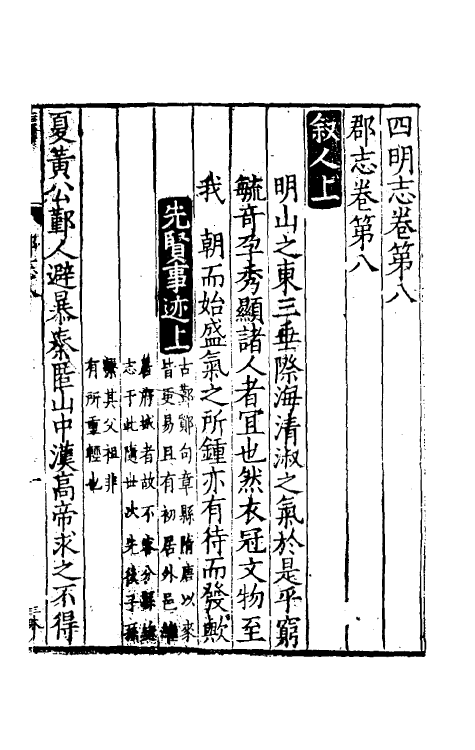 四明志卷第八
郡志卷第八
叙人上
明山之東三垂際海清淑之氣於是乎窮
毓竒孕秀顯諸人者宜也然衣冠文物至
我　朝而始盛氣之所鍾亦有待而發歟
先賢事迹上
古鄞鄮句章縣隋唐以來
皆更易且有初居外邑
府城者故不容分縣
志于此隨世次先後子孫
其父祖非
有所重輕也
夏黃公鄞人避暴秦匿山中漢高帝求之不得